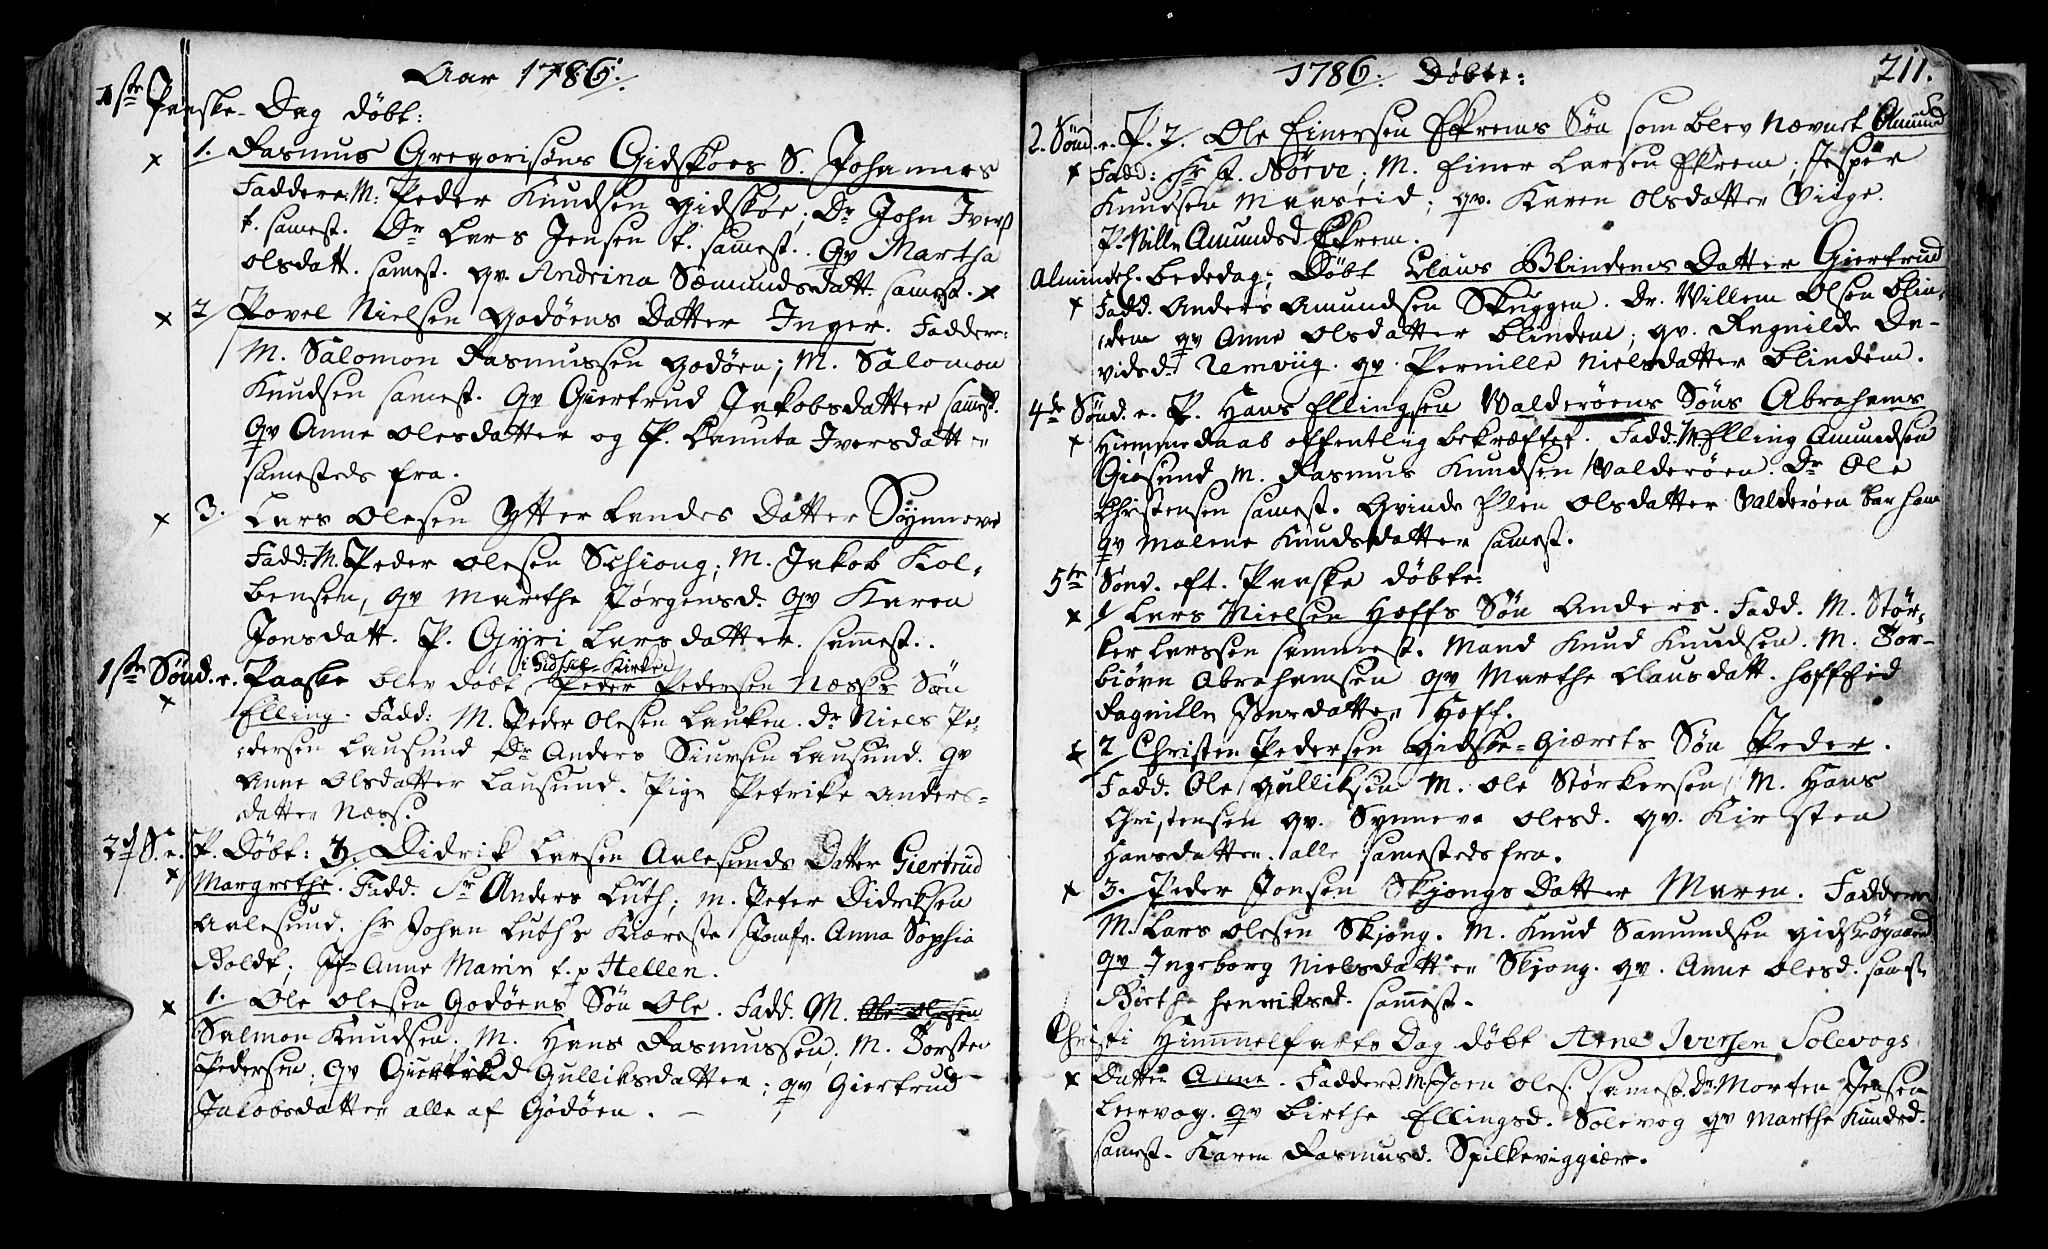 Aar 1786.
1ste Paaske-Dag døbt:
1. Rasmus Gregorisøns Gidskoes S. Johannes
Faddere: M: Peder Knudsen Gidskøe; Dr John Iverß
t. samest. Dr Lars Jensen t. samest. Qv Martha
Olsdatt. samest. qv. Andrina Sæmundsdatt. samest.
2/ Povel Nielsen Godøens Datter Inger. Faddere:
M. Salomon Rasmussen Godøen; M. Salomon
Knudsen samest. Qv Giertrud Jakobsdatter samest.
Qv Anne Olesdatter og P. Iversdatter
samesteds fra.
3. Lars Olesen Ytterlandes Datter Synneve
Fadd: M. Peder Olesen Schiong; M. Jakob Kol-
bensen, qv Marthe Jørgensd. qv Karen
Jonsdatt. P. Gyri Larsdatter. samest.
1ste Sønd. e. Paaske blev døbt i Kirke Peder Pedersen Næsses Søn
Elling. Fadd: M. Peder Olesen Lauken. Dr Niels Pe-
dersen Lausund Dr Anders Siursen Lausund. qv
Anne Olsdatter Lausund. Pige Petrike Anders-
datter Næss.
2d S. e. P. Døbt: Didrik Larsen Aalesunds Datter Giertrud
Margrethe. Fadd. Sr Anders Luth; M. Peter Didriksen
Aalesund. Hr Johan Luth's Kiæreste Jomfr. Anna Sophia
Boldt; Jfr Anne Marin t. p Hellen.
1. Ole Olesen Godøens Søn Ole. Fadd. M. Ole Olesen
Salmon Knudsen. M. Hans Rasmussen, M. Torsten
Pedersen; qv Giertrud Gulliksdatter; qv Giertrud
Jakobsdatter alle af Godøen.
1786. Døbte:
211.
2. Sønd. e. P. 2. Ole Einersen Ekrems Søn som blev nævnt Amund
Fadd: Hr Nörve; M. Einer Larsen Ekrem; Jesper
Knudsen Maaseid; qv. Karen Olsdatter Vitge.
P. Nille Amundsd Ekrem.
Almindel. Bededag; Døbt Claus Blindems Datter Giertrud
Fadd. Anders Amundsen Skuggen. Dr. Willem Olsen Blin-
dem qv Anne Olsdatter Blindem; qv. Ragnilde Da-
vidsd. Remviig. qv. Pernille Nielsdatter Blindem.
4de Sønd. e. P. Hans Ellingsen Walderøens Søns Abrahams
Hiemmedaab offentlig bekræftet. Fadd: M Elling Amundsen
Giøsund M. Rasmus Knudsen Walderøen. Dr Ole
Christensen samest. Qvinde Elen Olsdatter Valderøen bar ham
qv Malene Knudsdatter samest.
5te Sønd. eft. Paaske døbte:
1 Lars Nielsen Hoffs Søn Anders. Fadd. M. Stør-
ker Larssen sammest. Mand Knud Knudsen. M. Tor-
biørn Abrahamsen qv Marthe Clausdatt. Hoffeid
Ragnille Jonsdatter Hoff.
2 Christen Pedersen Gidske-Giærets Søn Peder.
Fadd. Ole Gulliksen M. Ole Størkersen M. Hans
Christensen qv. Synneve Olesd. qv. Kirsten
Hansdatter. alle samesteds fra.
3. Peder Jonsen Skjongs Datter Maren. Faddere
M. Lars Olesen Skjong. M. Knud Samundsen Gidskøgaard
qv Ingeborg Nielsdatter Skjong. qv. Anne Olesd. samest.
Birthe Henriksd. sammest.
Christi Himmelfarts Dag døbt Arne Iversen Solevogs
Datter Anne. Faddere M. Joen Oles. samest. Dr Morten Jensen
Leervog. qv Birthe Ellingsd. Solevog qv Marthe Knudsd.
samest. Karen Rasmusd. Spilkeviggiære.